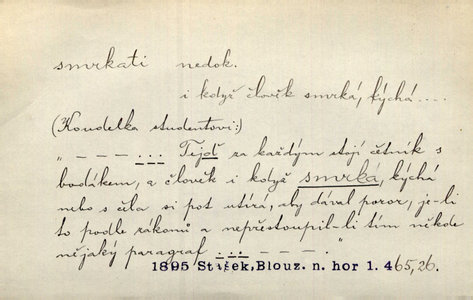 smrkati nedok.
i když člověk smrká, kýchá....
(Koudelka studentovi:)
"— — — ... Tejď za každým stojí četník s
bodákem, a člověk i když smrká, kýchá
nebo s čela si pot utírá, aby dával pozor, je-li
to podle zákonů a nepřestoupil-li tím někde
nějaký paragraf ... — — — ."
1895 Stašek, Blouz. n. hor 1. 465,26.